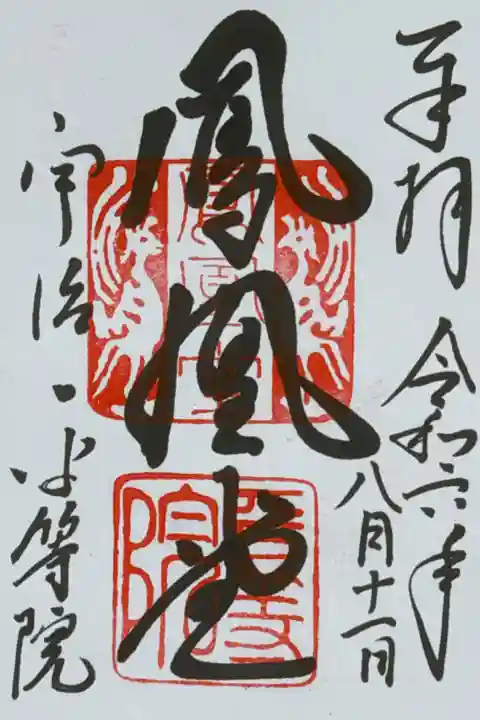 奉拝 令和六年
八月十一日
鳳凰堂
宇治・平等院
鳳凰堂